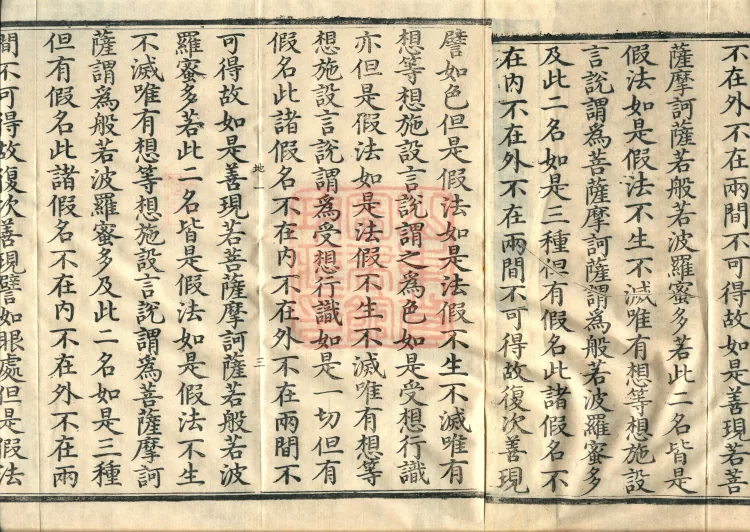 不在外不在兩間不可得故如是善現若菩
薩摩訶薩若般若波羅蜜多若此二名皆是
假法如是假法不生不滅唯有想等想施設
言說謂為菩薩摩訶薩謂為般若波羅蜜多
及此二名如是三種但有假名此諸假名不
在內不在外不在兩間不可得故復次善現
譬如色但是假法如是法假不生不滅唯有
想等想施設言說謂之為色如是受想行識
亦但是假法如是法假不生不滅唯有想等
想施設言說謂為受想行識如是一切但有
假名此諸假名不在內不在外不在兩間不
地一 三
可得故如是善現若菩薩摩訶薩若般若波
羅蜜多若此二名皆是假法如是假法不生
不滅唯有想等想施設言說謂為菩薩摩訶
薩謂為般若波羅蜜多及此二名如是三種
但有假名此諸假名不在內不在外不在兩
間不可得故復次善現譬如眼處但是假法